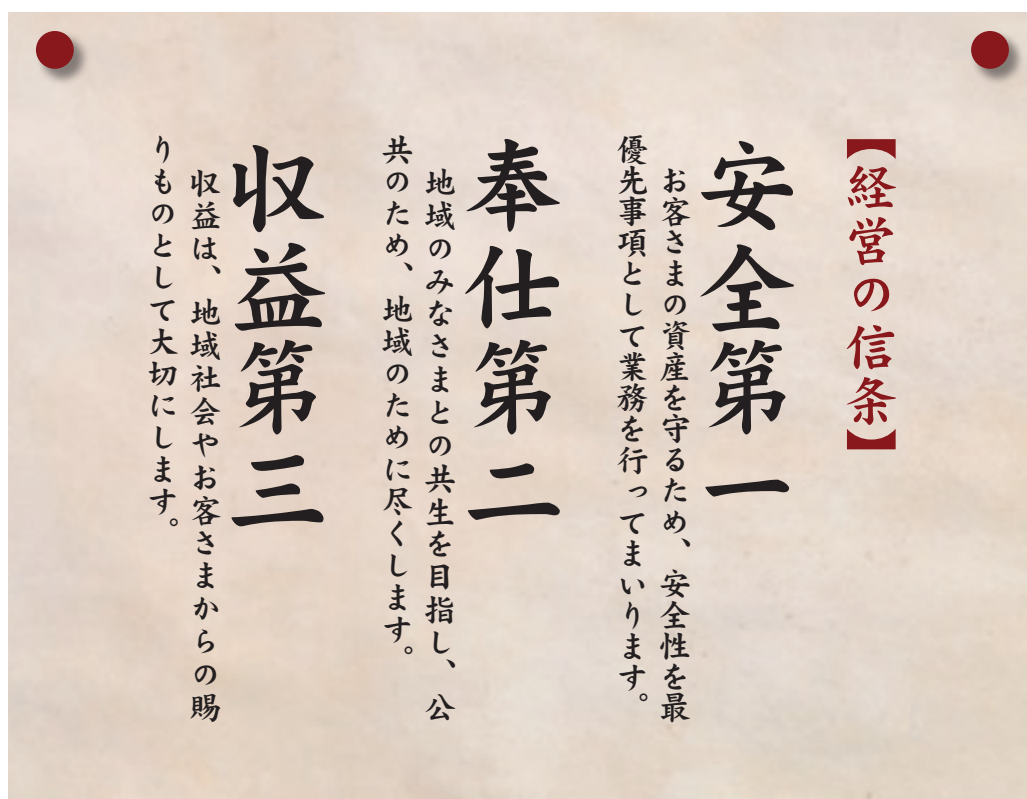 【経営の信条】
安全第一
お客さまの資産を守るため、安全性を最
優先事項として業務を行ってまいります。
奉仕第二
地域のみなさまとの共生を目指し、公
共のため、地域のために尽くします。
収益第三
収益は、地域社会やお客さまからの賜
りものとして大切にします。